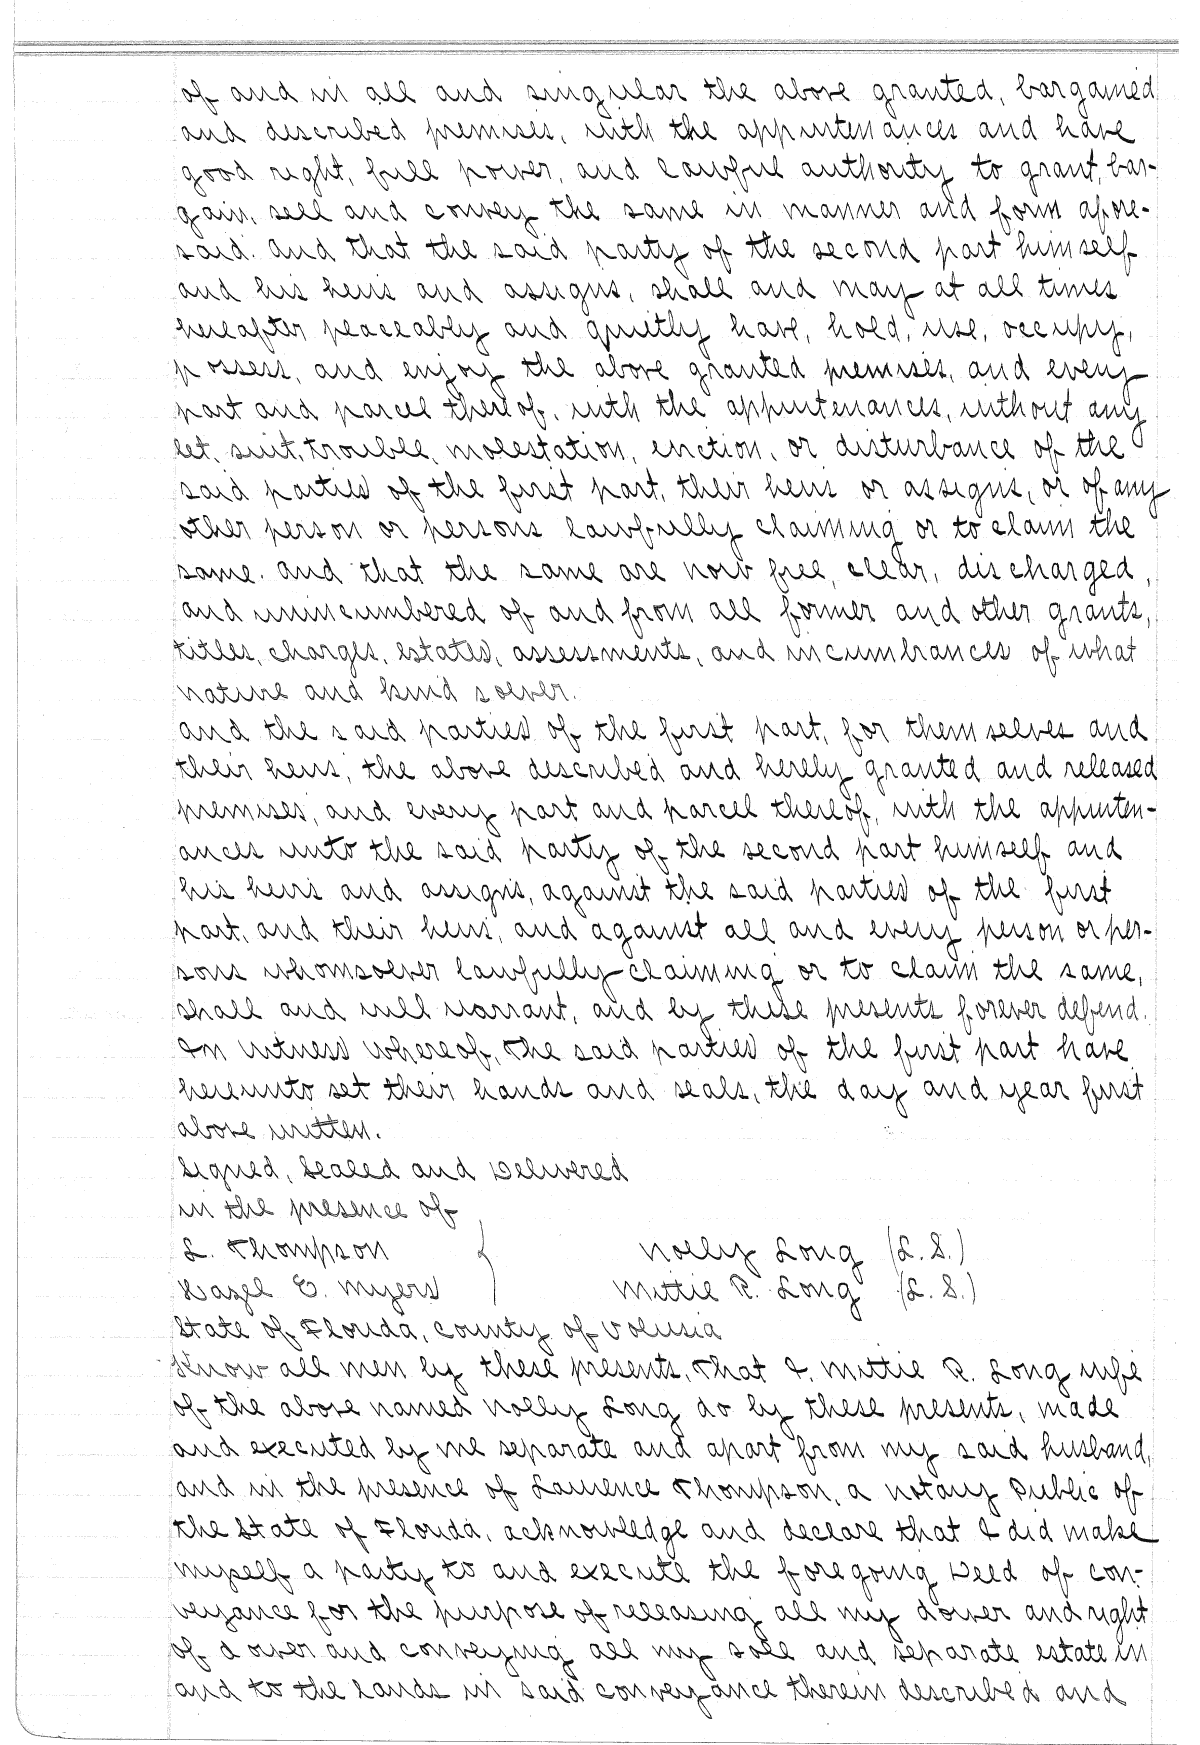 of and in all and singular the above granted, bargained
and described premises, with the appurtenances and have
good right, full power, and lawful authority to grant, bar-
gain, sell and convey the same in manner and form afore-
said. and that the said party of the second part himself
and his heirs and assigns, shall and may at all times
hereafter peaceably and quitly have, hold, use, occupy,
possess, and enjoy the above granted premises, and every
part and parcel thereof, with the appurtenances, without any
let, suit, trouble, molestation, eviction, or disturbance of the
said parties of the first part, their heirs or assigns, or of any
other person or persons lawfully claiming or to claim the
same. and that the same are now free, clear, discharged,
and unincumbered of and from all former and other grants,
titles, charges, estates, assessments, and incumbrances of what
nature and kind soever.
and the said parties of the first part, for themselves and
their heirs, the above described and hereby granted and released
premises, and every part and parcel thereof, with the appurten-
ances unto the said party of the second part himself and
his heirs and assigns, against the said parties of the first
part, and their heirs, and against all and every person or per-
sons whomsoever lawfully claiming or to claim the same,
shall and will warrant, and by these presents forever defend.
In witness whereof, the said parties of the first part have
hereunto set their hands and seals, the day and year first
above written.
Signed, Sealed and Delivered
in the presence of
L. Thompson } Nolly Long (L.S.)
Hazel E. Myers } Mittie R. Long (L.S.)
State of Florida, County of Volusia
Know all men by these presents, That I, Mittie R. Long wife
of the above named Nolly Long do by these presents, made
and executed by me separate and apart from my said husband,
and in the presence of Laurence Thompson, a Notary Public of
the State of Florida, acknowledge and declare that I did make
myself a party to and execute the foregoing Deed of con-
veyance for the purpose of releasing all my dower and right
of dower and conveying all my sole and separate estate in
and to the lands in said conveyance therein described and